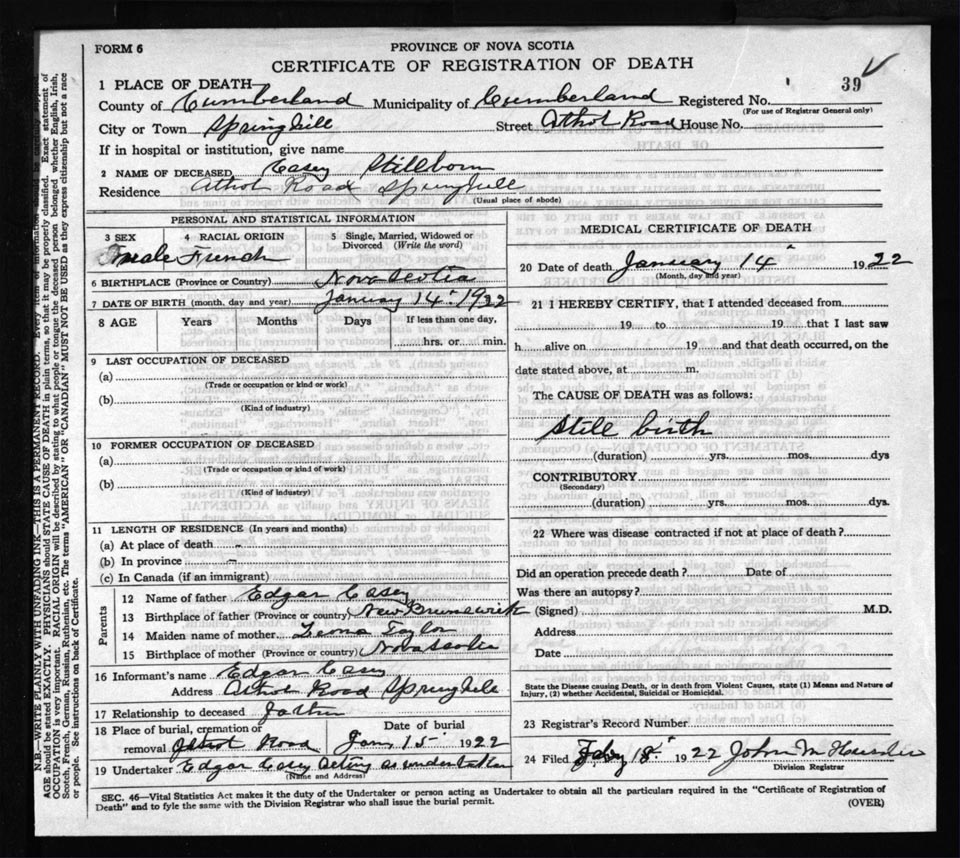 FORM 6
PROVINCE OF NOVA SCOTIA
CERTIFICATE OF REGISTRATION OF DEATH
39
1 PLACE OF DEATH
County of Cumberland Municipality of Cumberland Registered No.
(For use of Registrar General only)
City or Town Springhill Street Athol Road House No.
If in hospital or institution, give name
2 NAME OF DECEASED Casey Stillborn
Residence Athol Road Springhill
(Usual place of abode)
PERSONAL AND STATISTICAL INFORMATION
3 SEX 4 RACIAL ORIGIN 5 Single, Married, Widowed or Divorced (Write the word)
male French
6 BIRTHPLACE (Province or Country) Nova Scotia
7 DATE OF BIRTH (month, day and year) January 14th 1922
8 AGE Years Months Days If less than one day,
hrs. or min.
9 LAST OCCUPATION OF DECEASED
(a)
(Trade or occupation or kind or work)
(b)
(Kind of industry)
10 FORMER OCCUPATION OF DECEASED
(a)
(Trade or occupation or kind of work)
(b)
(Kind of industry)
11 LENGTH OF RESIDENCE (In years and months)
(a) At place of death –
(b) In province –
(c) In Canada (if an immigrant)
Parents
12 Name of father Edgar Casey
13 Birthplace of father (Province or country) New Brunswick
14 Maiden name of mother Leona Taylor
15 Birthplace of mother (Province or country) Nova Scotia
16 Informant's name Edgar Casey
Address Athol Road Springhill
17 Relationship to deceased father
18 Place of burial, cremation or Date of burial
removal Athol Road Jan 15 1922
19 Undertaker Edgar Casey acting as undertaker
(Name and Address)
MEDICAL CERTIFICATE OF DEATH
20 Date of death January 14th 1922
(Month, day and year)
21 I HEREBY CERTIFY, that I attended deceased from
19 to 19 that I last saw
h alive on 19 and that death occurred, on the
date stated above, at m.
The CAUSE OF DEATH was as follows:
Still birth
(duration) yrs. mos. dys
CONTRIBUTORY
(Secondary)
(duration) yrs. mos. dys.
22 Where was disease contracted if not at place of death?
Did an operation precede death? Date of
Was there an autopsy?
(Signed) M.D.
Address
Date
State the Disease causing Death, or in death from Violent Causes, state (1) Means and Nature of
Injury, (2) whether Accidental, Suicidal or Homicidal.
23 Registrar's Record Number
24 Filed 18th 1922 John M
Division Registrar
SEC. 46—Vital Statistics Act makes it the duty of the Undertaker or person acting as Undertaker to obtain all the particulars required in the "Certificate of Registration of
Death" and to fyle the same with the Division Registrar who shall issue the burial permit.
(OVER)
N.B.—WRITE PLAINLY WITH UNFADING INK—THIS IS A PERMANENT RECORD. Every item of information
AGE should be stated EXACTLY. PHYSICIANS should STATE CAUSE OF DEATH in plain terms, so that it may be properly classified. Exact statement of
OCCUPATION is very important. RACIAL ORIGIN will be described by stating to what people or tongue the deceased person belonged, whether English, Irish,
Scotch, French, German, Russian, Ruthenian, etc. The terms "AMERICAN" OR "CANADIAN" MUST NOT BE USED as they express citizenship but not a race
or people. See instructions on back of Certificate.